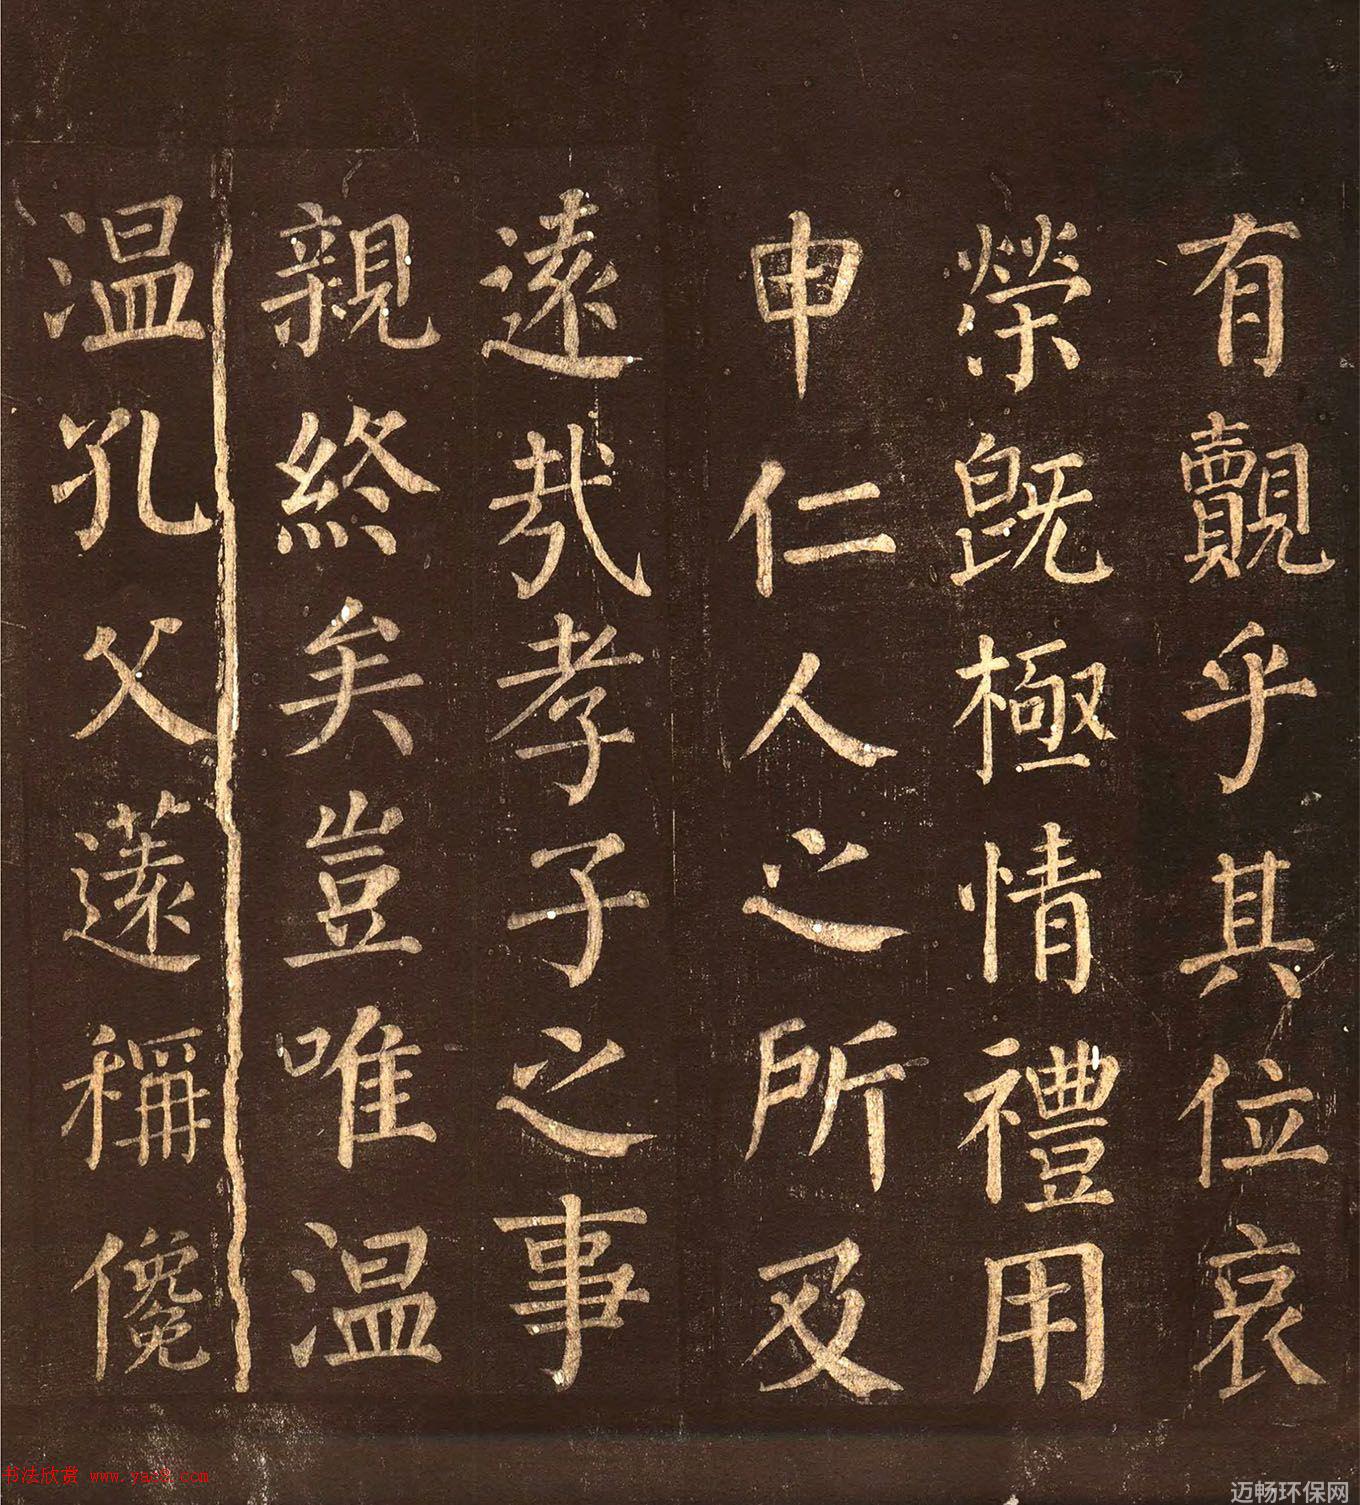 有覿乎其位哀
榮既極情禮用
申仁人之所及
遠哉孝子之事
親終矣豈唯温
温孔父薳稱儳
书法欣赏 www.yac8.com
迈畅环保网